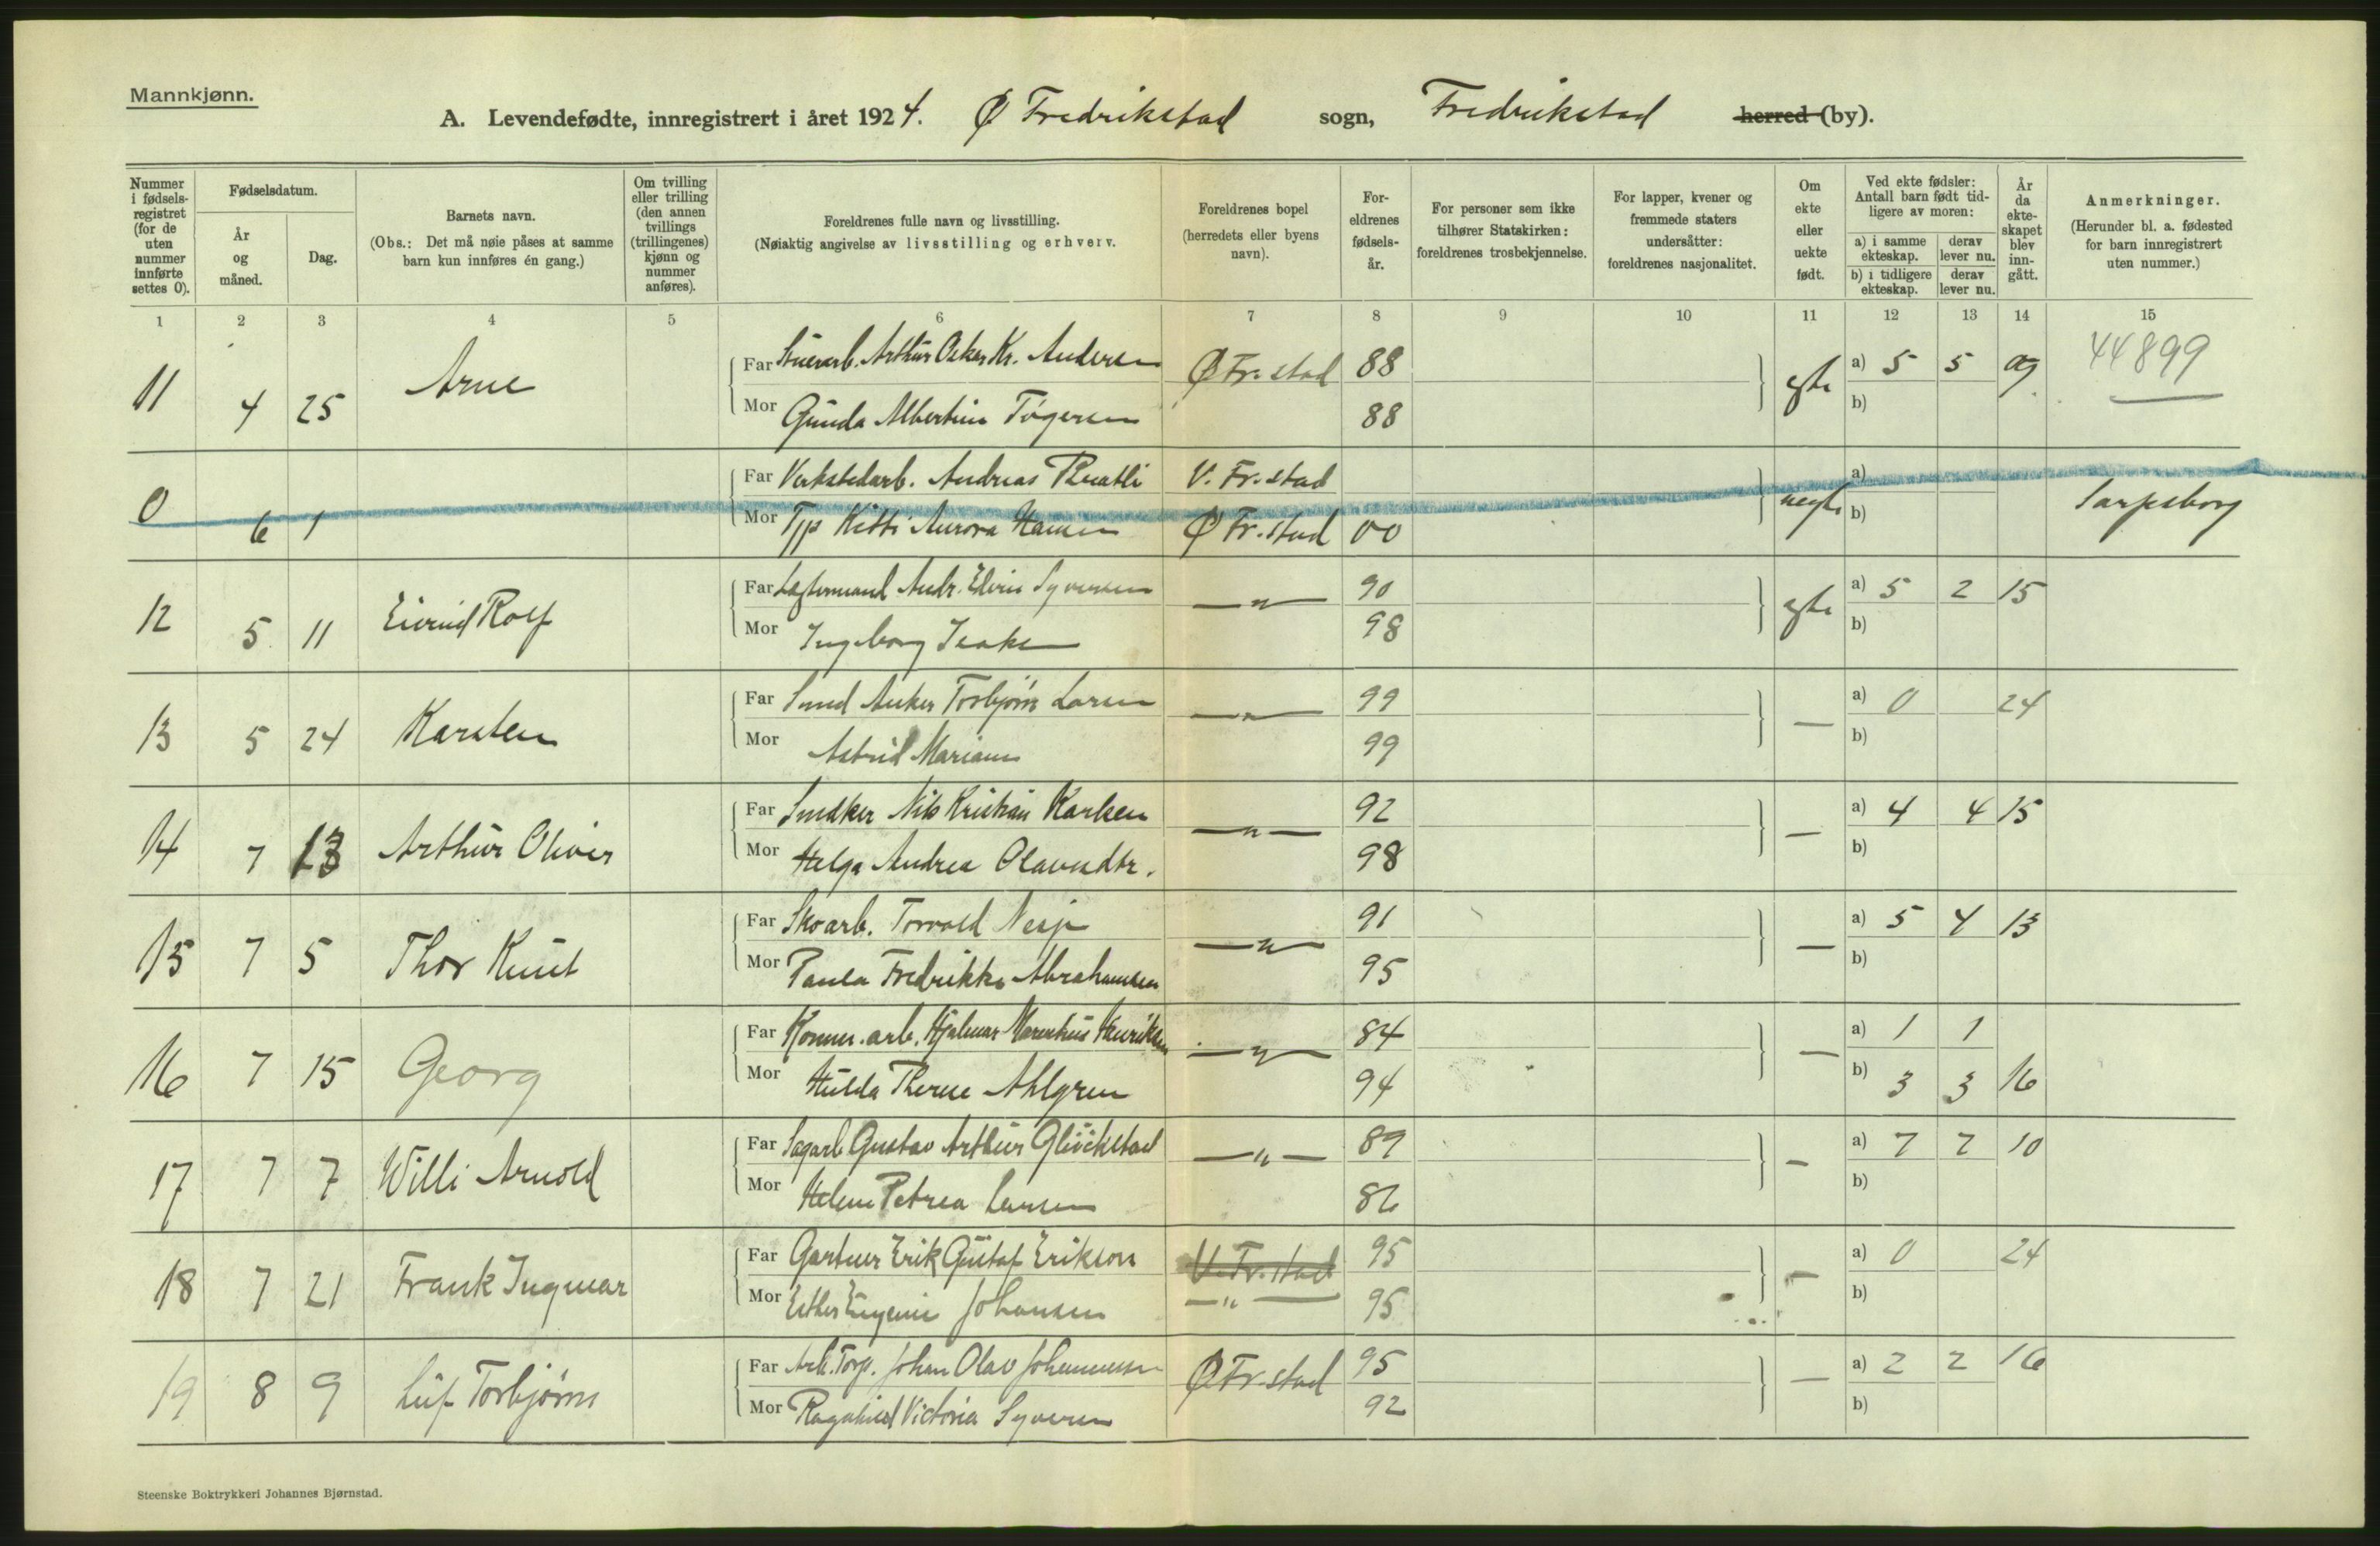 Mannkjønn.
A. Levendefødte, innregistrert i året 1924. Ø Fredrikstad sogn, Fredrikstad herred (by).
Nummer i fødselsregistret (for de uten nummer innførte settes 0).
Fødselsdatum.
År og måned.
Dag.
Barnets navn.
(Obs.: Det må nøie påses at samme barn kun innføres én gang.)
Om tvilling eller trilling (den annen tvillings (trillingenes) kjønn og nummer anføres).
Foreldrenes fulle navn og livsstilling.
(Nøiaktig angivelse av livsstilling og erhverv.
Foreldrenes bopel (herredets eller byens navn).
Foreldrenes fødselsår.
For personer som ikke tilhører Statskirken: foreldrenes trosbekjennelse.
For lapper, kvener og fremmede staters undersåtter: foreldrenes nasjonalitet.
Om ekte eller uekte født.
Ved ekte fødsler: Antall barn født tidligere av moren:
a) i samme ekteskap. derav lever nu.
b) i tidligere ekteskap. derav lever nu.
År da ekteskapet blev inngått.
Anmerkninger.
(Herunder bl. a. fødested for barn innregistrert uten nummer.)
1 2 3 4 5 6 7 8 9 10 11 12 13 14 15
Far Arthur Oskar Kr. Andersen Ø Fr.stad 88 a) 5 5 09 44899
11 4 25 Arne egte
Mor Gunda Albertine Togersen 88 b)
Far Verkstedarb. Andreas V. Fr.stad a)
0 6 1 uegte Sarpsborg
Mor Tjp Kitti Aurora Hansen Ø Fr.stad 00 b)
Far Andr. Edvin Syversen —"— 90 a) 5 2 15
12 5 11 Eivind Rolf egte
Mor Ingeborg 98 b)
Far Smed Anker Torbjørn Larsen —"— 99 a) 0 24
13 5 24 Karsten —
Mor Astrid 99 b)
Far Snedker Nils Kristian Karlsen —"— 92 a) 4 4 15
14 7 13 Arthur Oliver —
Mor Helga Andrea Olavesdtr. 98 b)
Far Skoarb. Torvald —"— 91 a) 5 4 13
15 7 5 Thor Knut —
Mor Paula Fredrikke Abrahamsen 95 b)
Far Hjalmar Henriksen —"— 84 a) 1 1
16 7 15 Georg —
Mor Hulda Therese Ahlgren 94 b) 3 3 16
Far Sagarb Gustav Arthur Glückstad —"— 89 a) 7 7 10
17 7 7 Willi Arnold —
Mor Helene Petrea 86 b)
Far Gartner Erik Gustaf Erikson V. Fr.stad 95 a) 0 24
18 7 21 Frank Ingmar —
Mor Esther Eugenie Johansen —"— 95 b)
Far Arb. Torp. Johan Olav Johannessen Ø Fr.stad 95 a) 2 2 16
19 8 9 Leif Torbjørn —
Mor Ragnhild Victoria Syversen 92 b)
Steenske Boktrykkeri Johannes Bjørnstad.